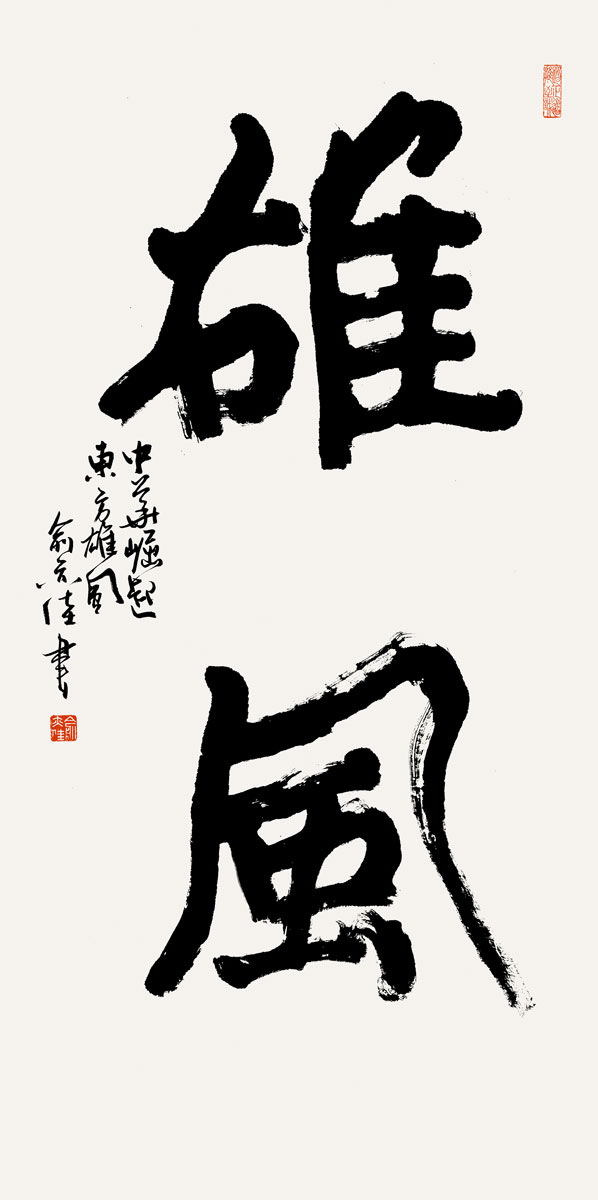 雄
風
中華崛起
東方雄風
俞 書